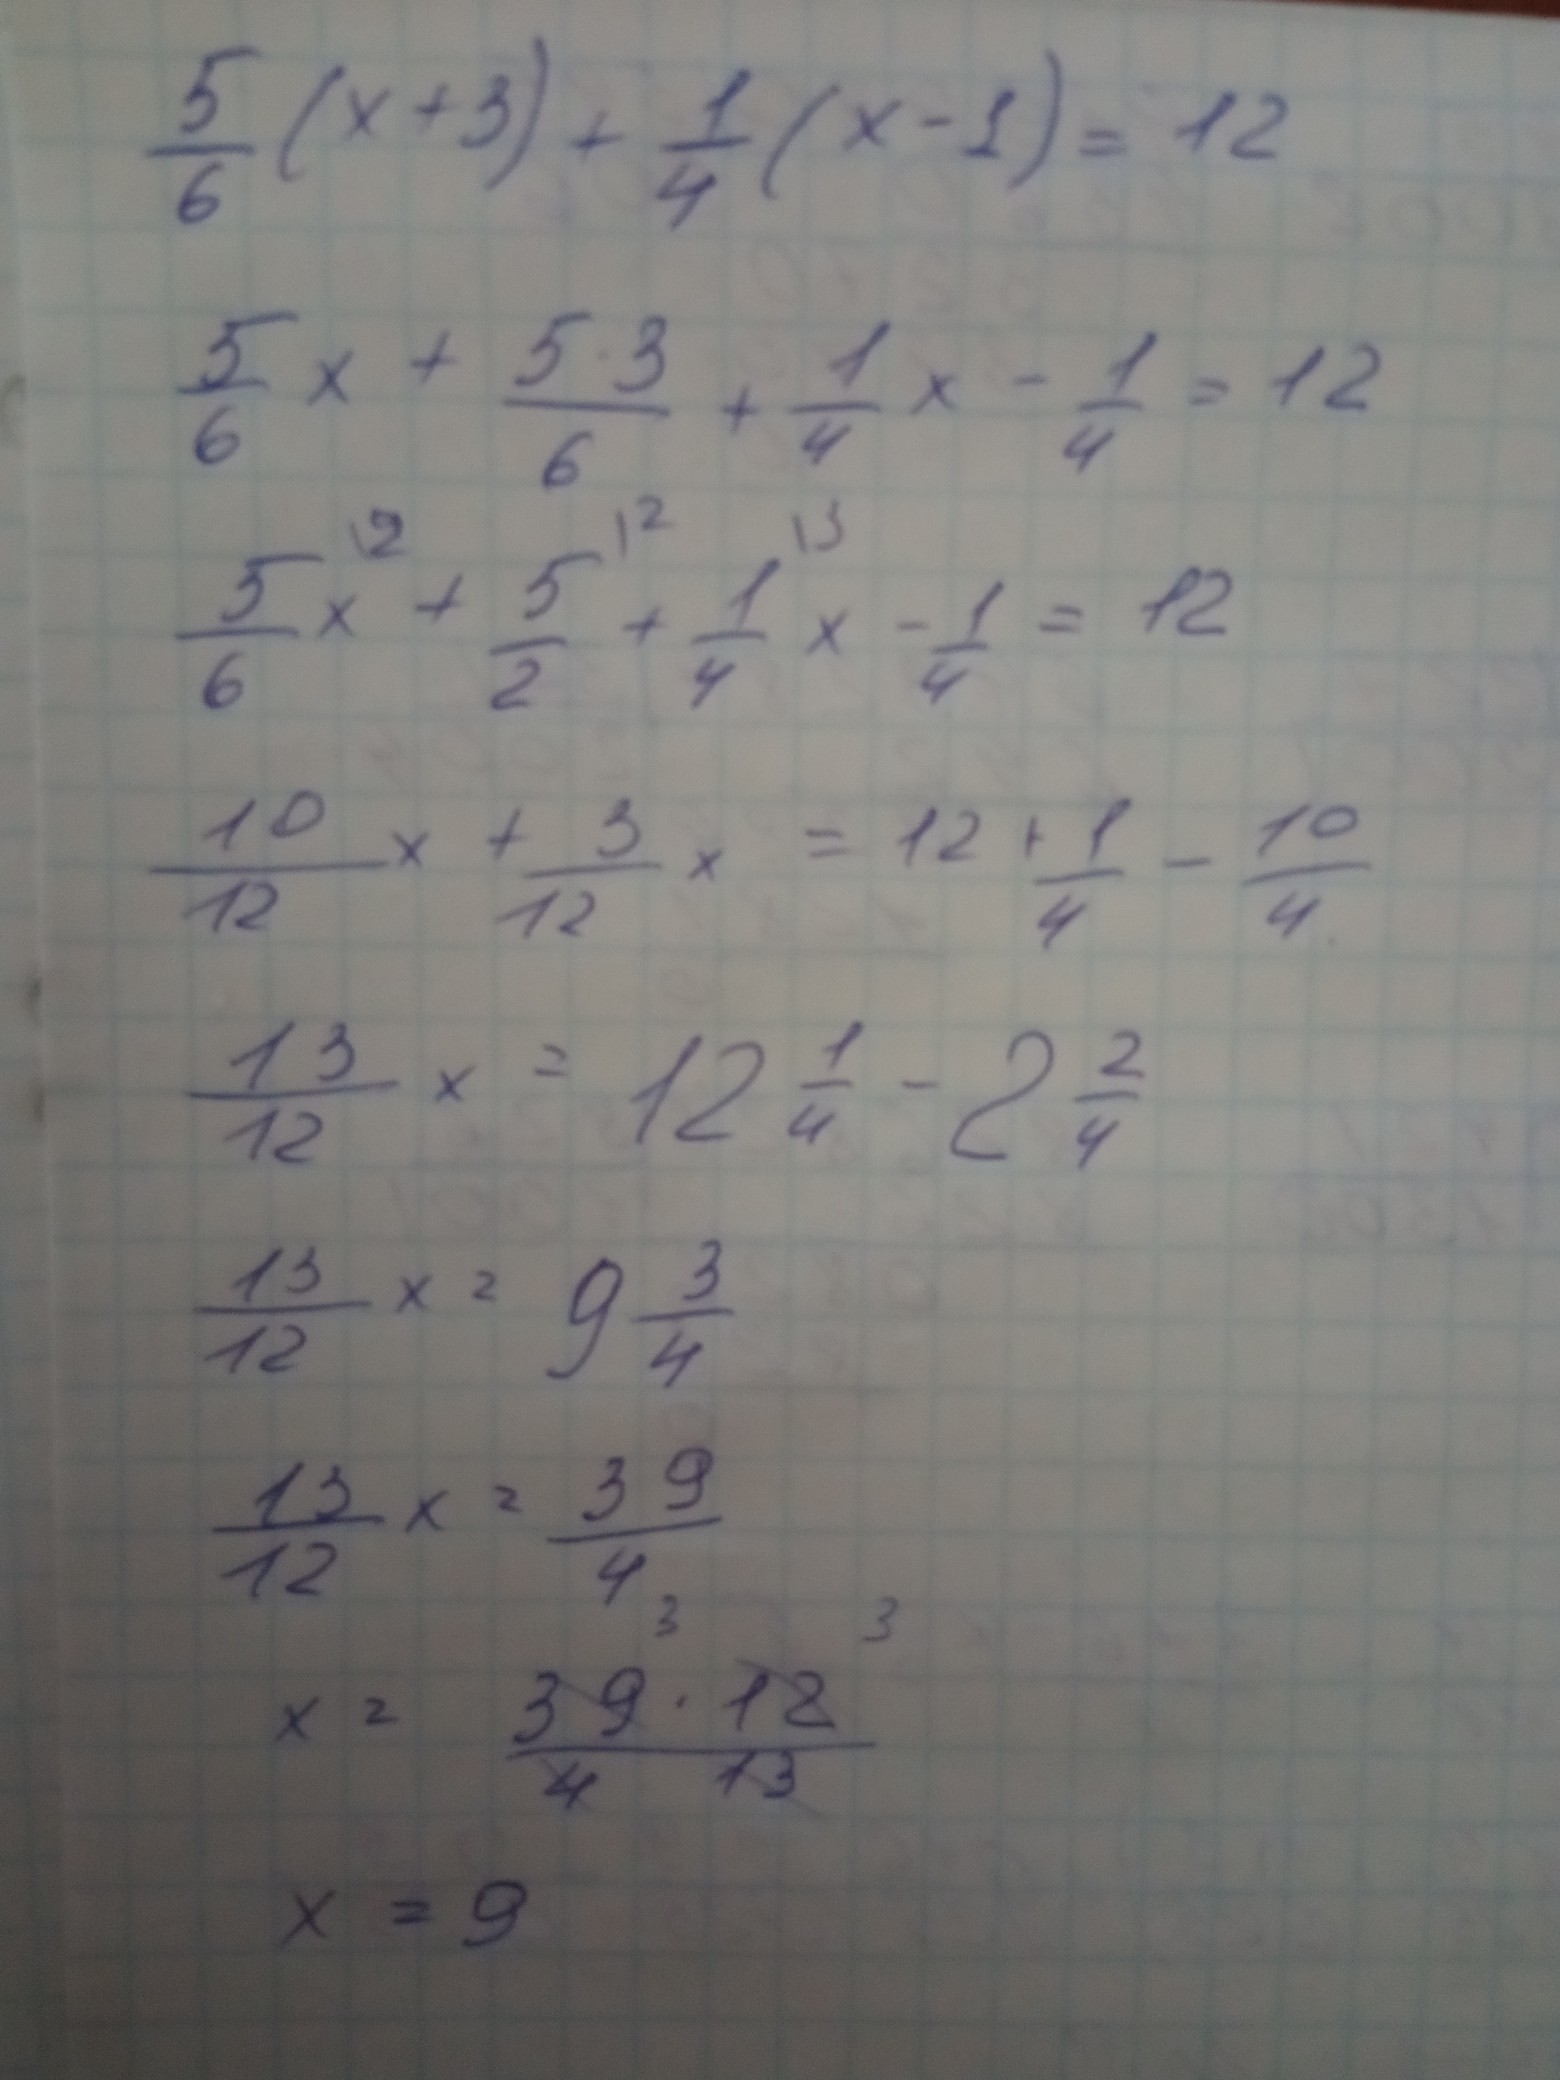 5/6 (x + 3) + 1/4 (x - 1) = 12
5/6 x + 5·3/6 + 1/4 x - 1/4 = 12
5/6 x \2 + 5/2 \2 + 1/4 \3 x - 1/4 = 12
10/12 x + 3/12 x = 12 + 1/4 - 10/4
13/12 x = 12 1/4 - 2 2/4
13/12 x = 9 3/4
13/12 x = 39/4
3 3
x = 39 · 12 / 4 13
x = 9